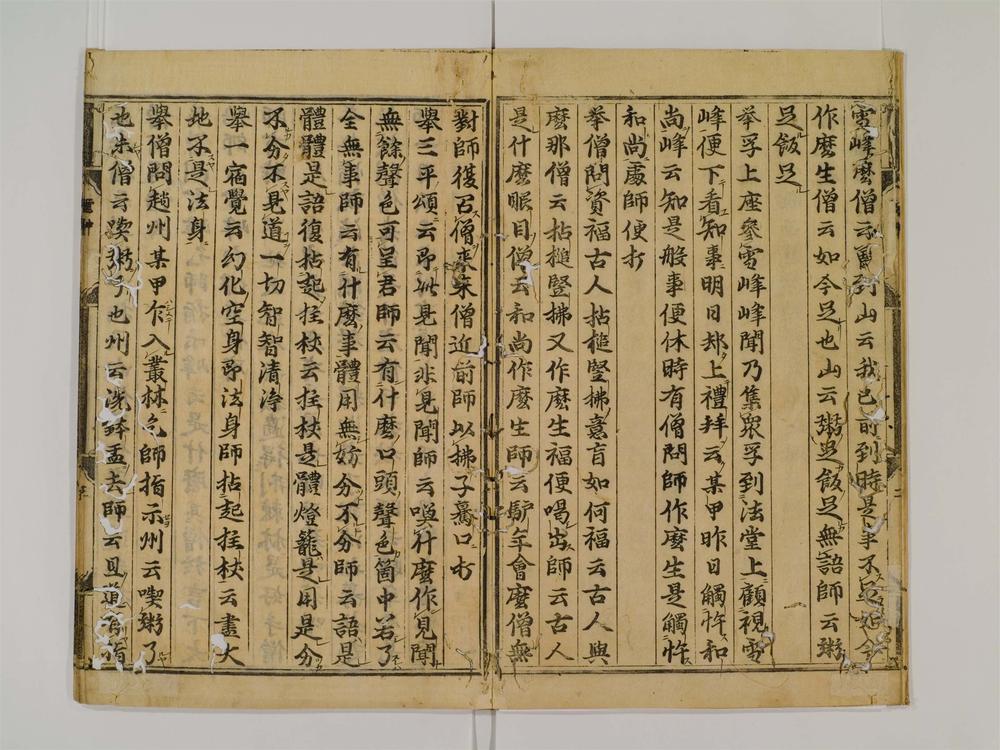 雪峰麼僧云曾到山云我已前到時是事不足如今
作麼生僧云如今足也山云粥足飯足無語師云粥
足飯足
舉孚上座參雪峰峰聞乃集衆孚到法堂上顧視雪
峰便下看知事明日却上禮拜云某甲昨日觸忤和
尚峰云知是般事便休時有僧問師作麼生是觸忤
和尚處師便打
舉僧問資福古人拈槌竪拂意旨如何福云古人與
麼那僧云拈槌竪拂又作麼生福便喝出師云古人
是什麼眼目僧云和尚作麼生師云驢年會麼僧無
對師復召僧來來僧近前師以拂子驀口打
舉三平頌云即此見聞非見聞師云喚什麼作見聞
無餘聲色可呈君師云有什麼口頭聲色箇中若了
全無事師云有什麼事體用無妨分不分師云語是
體體是語復拈起拄杖云拄杖是體燈籠是用是分
不分不見道一切智智清淨
舉一宿覺云幻化空身即法身師拈起拄杖云盡大
地不是法身
舉僧問趙州某甲乍入叢林乞師指示州云喫粥了
也未僧云喫粥了也州云洗鉢盂去師云且道有指